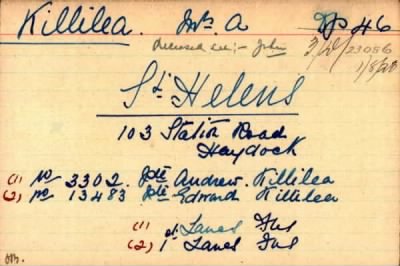 Killilea. Mrs. A Dp 46
Deceased son:- John 3/W/23086
1/8/20
St Helens
103 Station Road
Haydock
(1) No 3302. Pte Andrew. Killilea
(2) No 13483 Pte Edmond Killilea
(1) Lancs Fus
(2) 1st Lancs Fus